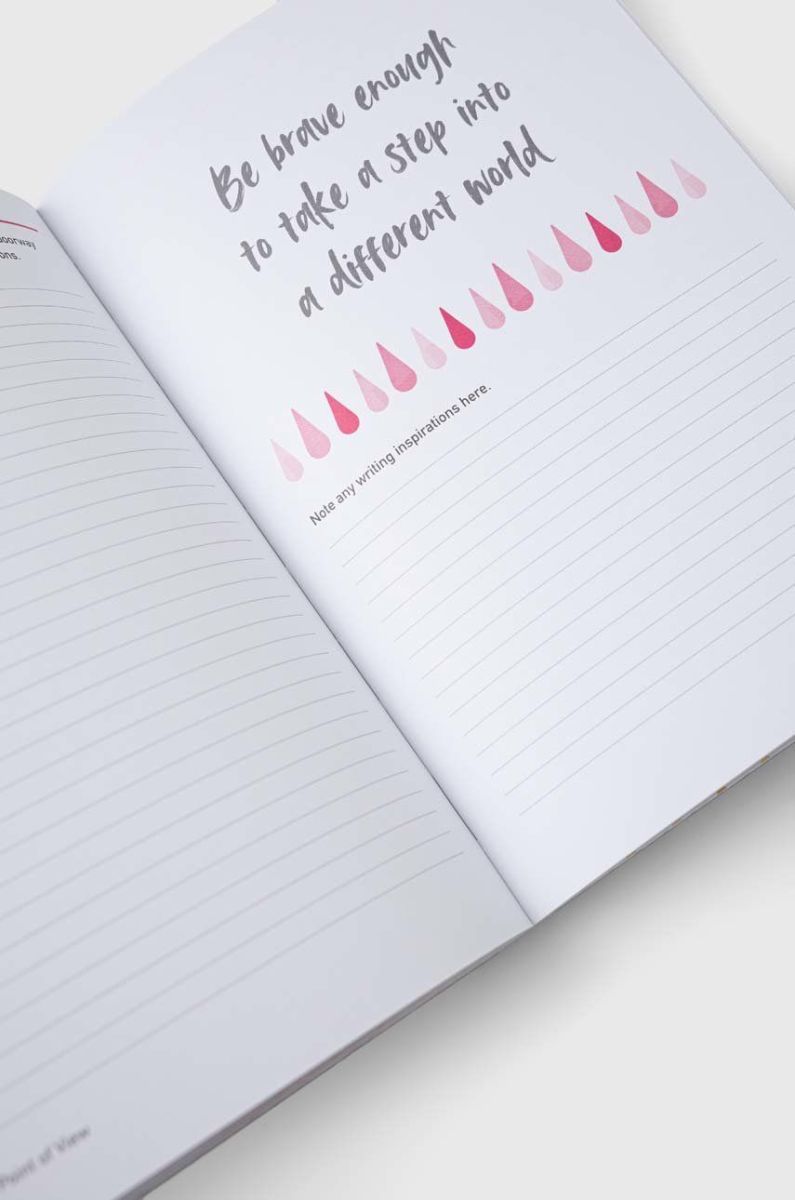 doorway
ons.
Point of View
Be brave enough
to take a step into
a different world
Note any writing inspirations here.